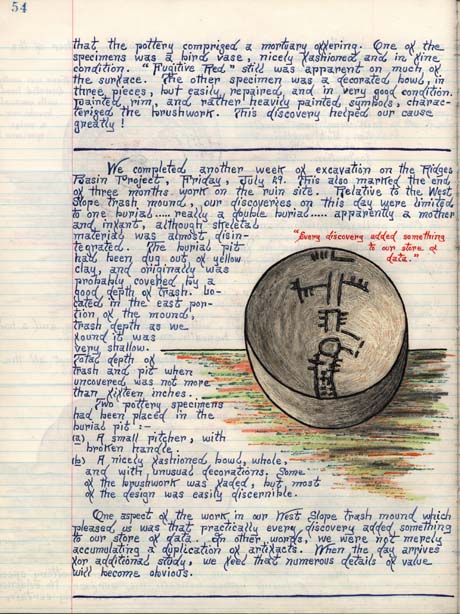 54
that the pottery comprized a mortuary offering. One of the
specimens was a bird vase, nicely fashioned and in fine
condition. "Fugitive Red" still was apparent on much of
the surface. The other specimen was a decorated bowl, in
three pieces, but easily repaired, and in very good condition.
Painted rim, and rather heavily painted symbols, charac-
terized the brushwork. This discovery helped our cause
greatly!
We completed another week of excavation on the Ridges
Basin Project, Friday, July 29. This also marked the end
of three months work on the ruin site. Relative to the West
Slope trash mound, our discoveries on this day were limited
to one burial..... really a double burial..... apparently a mother
and infant, although skeletal
material was almost disin-
tegrated. The burial pit
had been dug out of yellow
clay, and originally was
probably covered by a
good depth of trash. Lo-
cated in the east por-
tion of the mound,
trash depth as we
found it was
very shallow.
Total depth of
trash and pit when
uncovered was not more
than sixteen inches.
Two pottery specimens
had been placed in the
burial pit :-
(a) A small pitcher, with
broken handle.
(b) A nicely fashioned bowl, whole,
and with unusual decorations. Some
of the brushwork was faded, but most
of the design was easily discernible.
"Every discovery added something
to our store of
data."
One aspect of the work in our West Slope trash mound which
pleased us was that practically every discovery added something
to our store of data. In other words, we were not merely
accumulating a duplication of artifacts. When the day arrives
for additional study, we feel that numerous details of value
will become obvious.